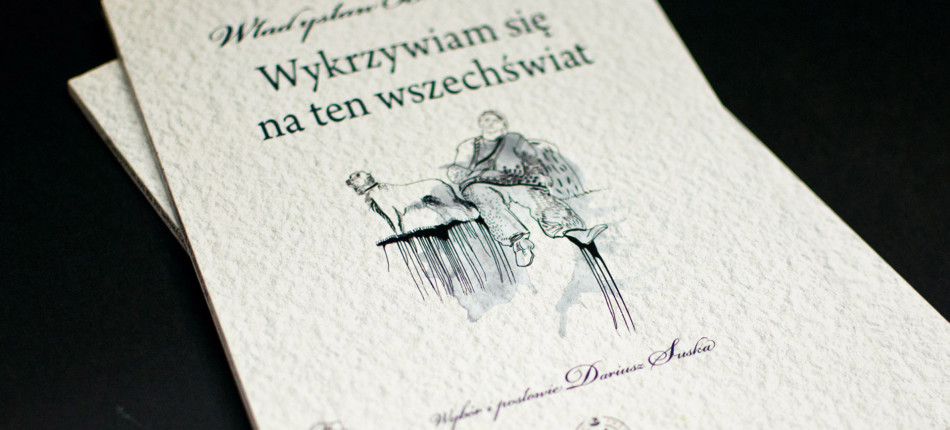 Władysław
Wykrzywiam się
na ten wszechświat
Wybór i posłowie Dariusz Suska